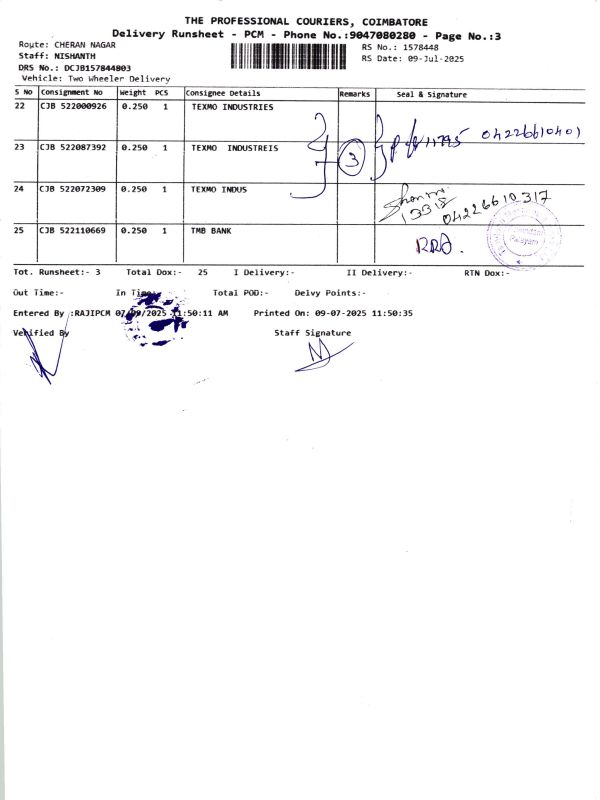 THE PROFESSIONAL COURIERS, COIMBATORE
Delivery Runsheet - PCM - Phone No.:9047080280 - Page No.:3
Route: CHERAN NAGAR
RS No.: 1578448
Staff: NISHANTH
RS Date: 09-Jul-2025
DRS No.: DCJB157844803
Vehicle: Two Wheeler Delivery
S No Consignment No Weight PCS Consignee Details Remarks Seal & Signature
22 CJB 522000926 0.250 1 TEXMO INDUSTRIES
11795 04226610401
23 CJB 522087392 0.250 1 TEXMO INDUSTREIS
3
24 CJB 522072309 0.250 1 TEXMO INDUS
13318 04226610317
25 CJB 522110669 0.250 1 TMB BANK
Tot. Runsheet:- 3 Total Dox:- 25 I Delivery:- II Delivery:- RTN Dox:-
Out Time:- In Time:- Total POD:- Delvy Points:-
Entered By :RAJIPCM 07/09/2025 11:50:11 AM Printed On: 09-07-2025 11:50:35
Verified By Staff Signature